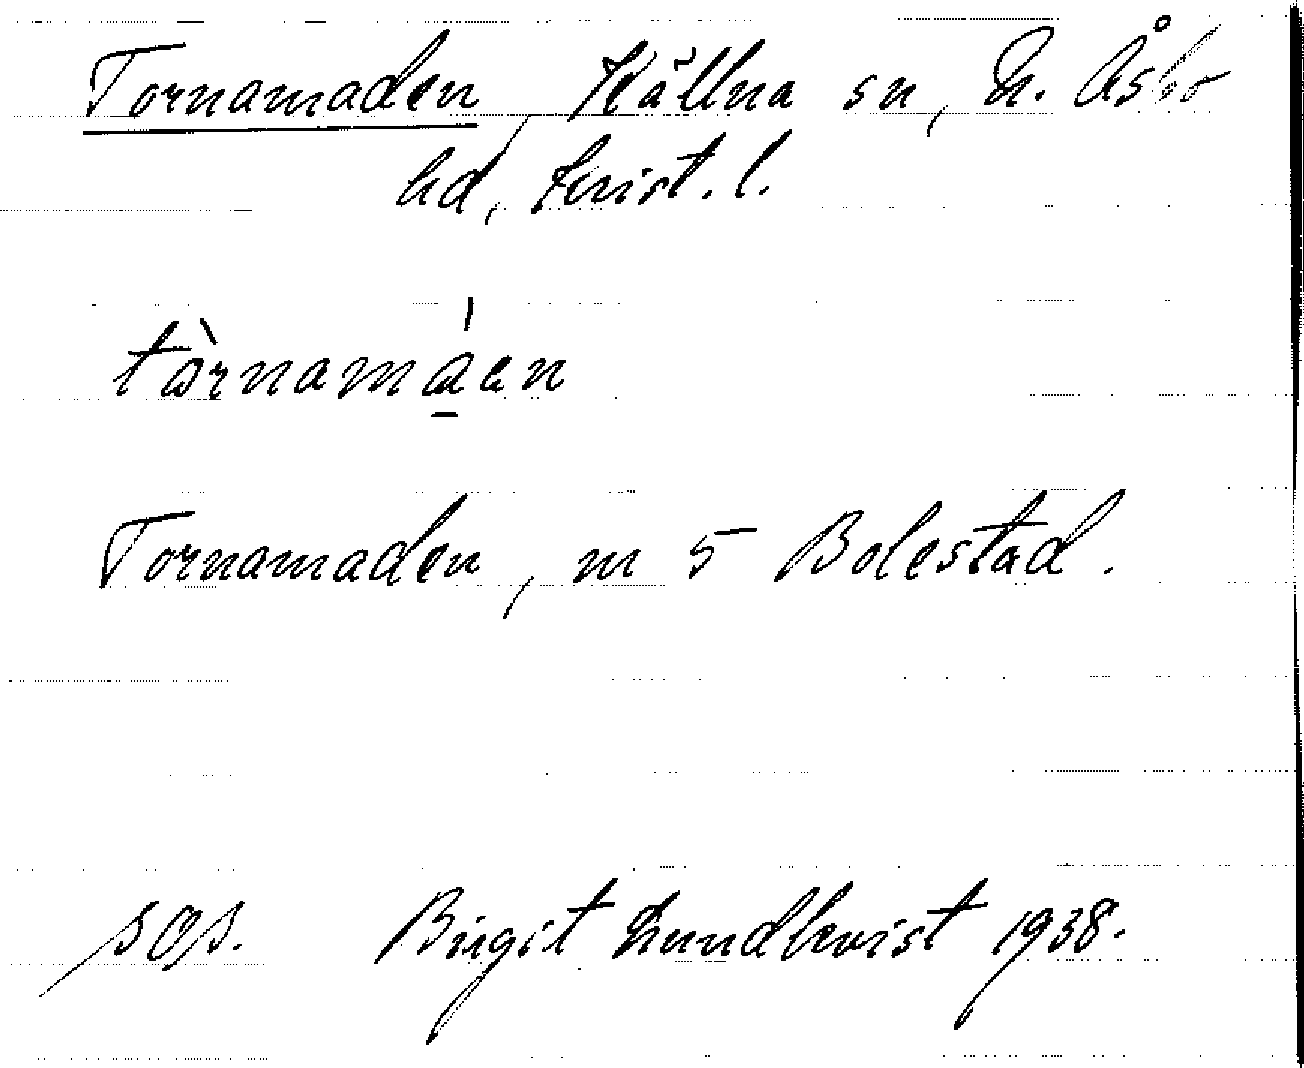 Tornamaden, Källna sn, N. Åsbo
hd, Krist. l.
tòrnamáen
Tornamaden, m 5 Bolestad.
sOs. Birgit Lundkvist 1938.